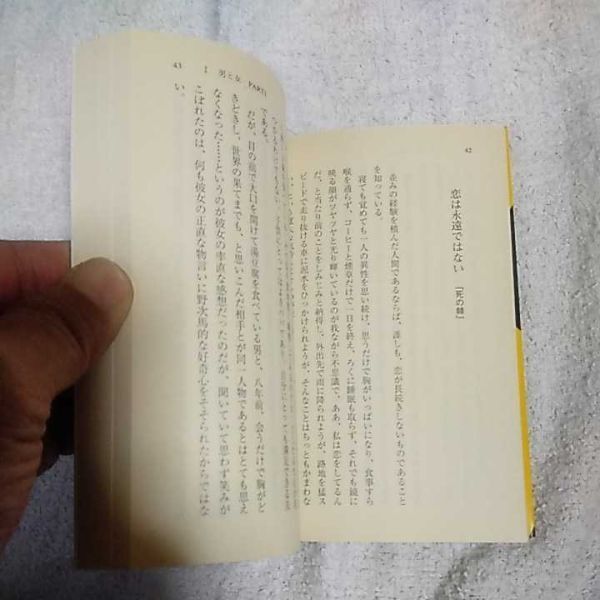 42
恋は永遠ではない 『死の棘』
並みの経験を積んだ人間であるならば、誰しも、恋が長続きしないものであること
を知っている。
寝ても覚めても一人の異性を思い続け、思うだけで胸がいっぱいになり、食事すら
喉を通らず、コーヒーと煙草だけで一日を終え、ろくに睡眠も取らず、それでも鏡に
映る顔がツヤツヤと光り輝いているのが我ながら不思議で、ああ、私は恋をしてるん
だ、と当たり前のことをしみじみと納得し、外出先で雨に降られようが、路地を猛ス
ピードで走り抜ける車に泥水をひっかけられようが、そんなことはちっともかまわな
43 I 男と女 PART1
である。
だが、目の前で大口を開けて湯豆腐を食べている男と、八年前、会うだけで胸がど
きどきし、世界の果てまでも、と思いこんだ相手とが同一人物であるとはとても思え
なくなった……というのが彼女の率直な感想だったのだが、聞いていて思わず笑みが
こぼれたのは、何も彼女の正直な物言いに野次馬的な好奇心をそそられたからではな
い。